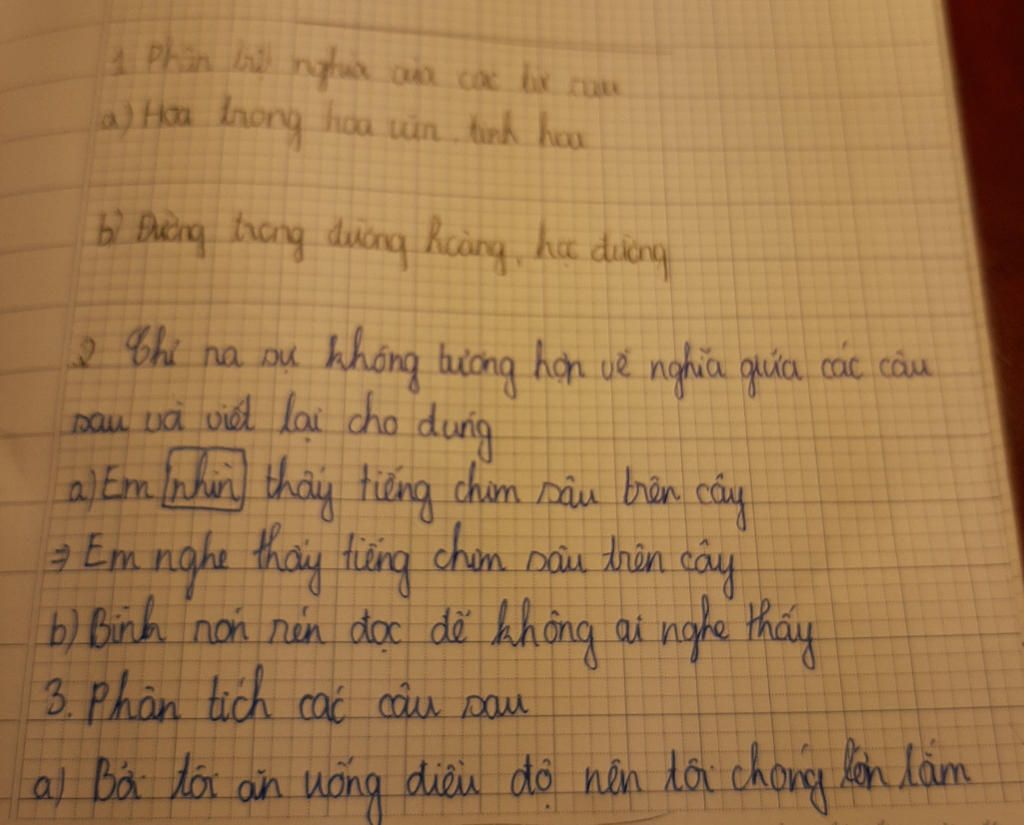 1 Phân biệt nghĩa của các từ sau
a) Hoa trong hoa văn, tinh hoa
b) Đường trong đường hoàng, học đường
2 Chỉ ra sự không tương hợp về nghĩa giữa các câu
sau và viết lại cho đúng
a) Em nhìn thấy tiếng chim sâu trên cây
⇒ Em nghe thấy tiếng chim sâu trên cây
b) Bình rón rén đọc để không ai nghe thấy
3. Phân tích các câu sau
a) Bởi tôi ăn uống điều độ nên tôi chóng lớn lắm